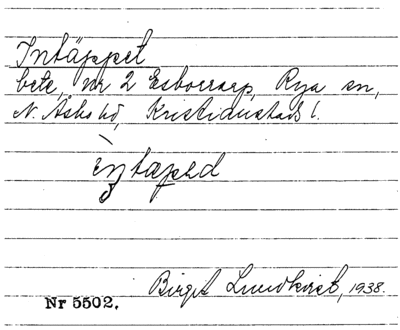 Intäppet
bete, nr 2 Esborrarp, Rya sn,
N. Åsbo hd, Kristianstads l.
Nr 5502.
Birgit Lundkvist, 1938.